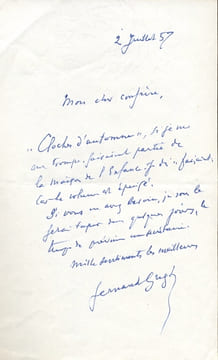 2 Juillet 57
Mon cher confrère,
"Cloches d'automne", si je ne
me trompe, faisaient partie de
la maison de l'Enfance
car le volume est épuisé.
Si vous en avez besoin, je vous le
ferai taper dans quelques jours, le
temps de
Mille sentiments les meilleurs
Fernand Gregh